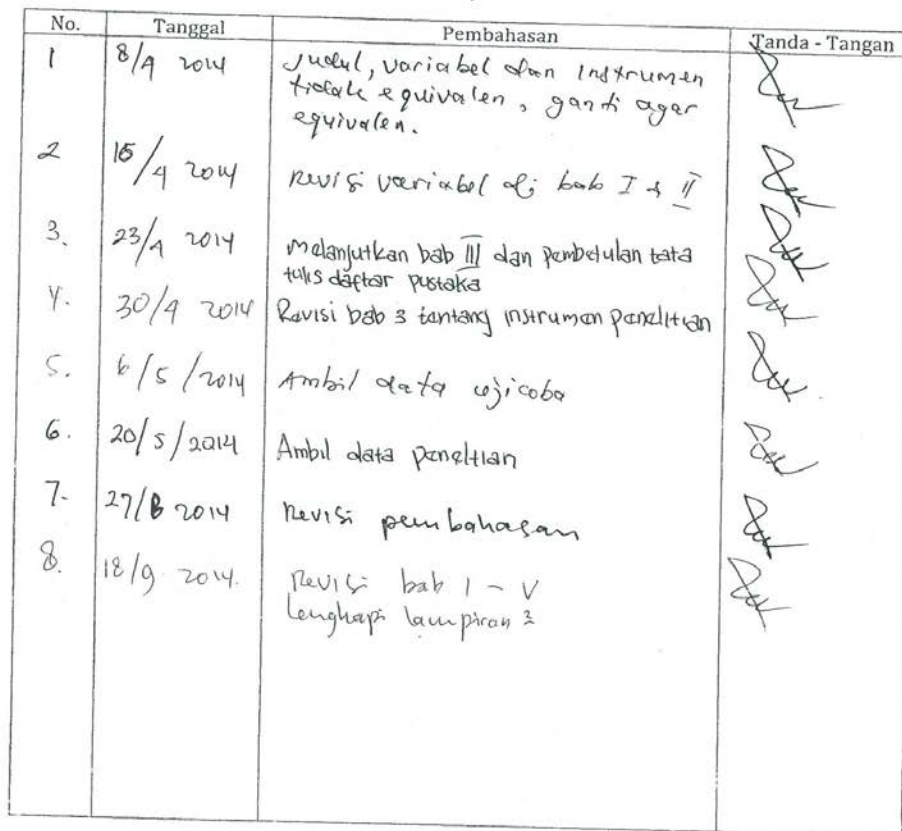 No. Tanggal Pembahasan Tanda - Tangan
1 8/4 2014 Judul, variabel dan Instrumen
tidak equivalen, ganti agar
equivalen.
2 15/4 2014 Revisi variabel di bab I & II
3. 23/4 2014 Melanjutkan bab III dan pembetulan tata
tulis daftar pustaka
4. 30/4 2014 Revisi bab 3 tentang instrumen penelitian
5. 6/5/2014 Ambil data ujicoba
6. 20/5/2014 Ambil data penelitian
7. 27/8 2014 Revisi pembahasan
8. 18/9 2014. Revisi bab I - V
Lengkapi lampiran 2